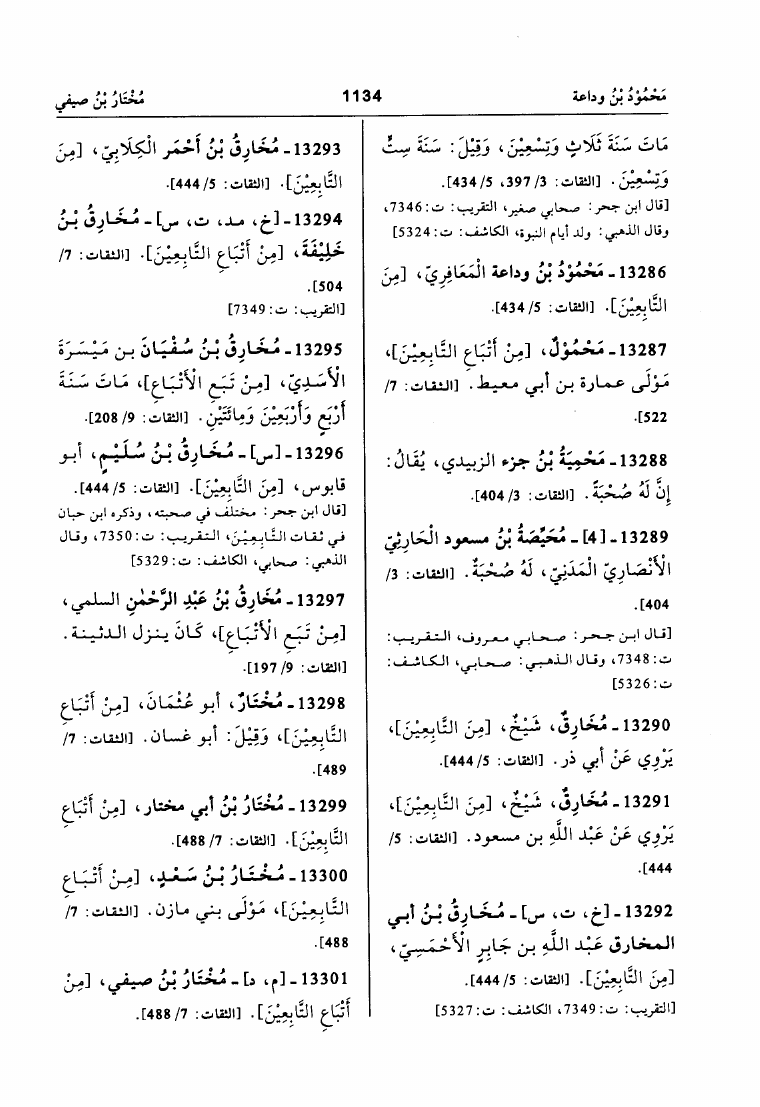 مَحْمُوْدُ بْنُ وداعة
1134
مُخْتَارُ بْنُ صيفي
مَاتَ سَنَةَ ثَلَاثٍ وَتِسْعِيْنَ، وَقِيْلَ: سَنَةَ سِتٍّ
وَتِسْعِيْنَ. [الثقات: 3/ 397، 5/ 434].
[قال ابن حجر: صحابي صغير، التقريب: ت:7346،
وقال الذهبي: ولد أيام النبوة، الكاشف: ت:5324]
13286- مَحْمُوْدُ بْنُ وداعة الْمَعَافِرِيّ، [مِنَ
التَّابِعِيْنَ]. [الثقات: 5/ 434].
13287- مَحْمُوْلٌ، [مِنْ أَتْبَاعِ التَّابِعِيْنَ]،
مَوْلَى عمارة بن أبي معيط. [الثقات: 7/
522].
13288- مَحْمِيَةُ بْنُ جزء الزبيدي، يُقَالُ:
إِنَّ لَهُ صُحْبَةً. [الثقات: 3/ 404].
13289- [4]- مُحَيِّصَةُ بْنُ مسعود الْحَارِثِيّ
الْأَنْصَارِيّ الْمَدَنِيّ، لَهُ صُحْبَةٌ. [الثقات: 3/
404].
[قال ابن حجر: صحابي معروف، التقريب:
ت:7348، وقال الذهبي: صحابي، الكاشف:
ت:5326]
13290- مُخَارِقٌ، شَيْخٌ، [مِنَ التَّابِعِيْنَ]،
يَرْوِي عَنْ أبي ذر. [الثقات: 5/ 444].
13291- مُخَارِقٌ، شَيْخٌ، [مِنَ التَّابِعِيْنَ]،
يَرْوِي عَنْ عَبْدِ اللَّهِ بن مسعود. [الثقات: 5/
444].
13292- [خ، ت، س]- مُخَارِقُ بْنُ أبي
المخارق عَبْدِ اللَّهِ بن جَابِرٍ الْأَحْمَسِيّ،
[مِنَ التَّابِعِيْنَ]. [الثقات: 5/ 444].
[التقريب: ت:7349، الكاشف: ت:5327]
13293- مُخَارِقُ بْنُ أَحْمَر الْكِلَابِيّ، [مِنَ
التَّابِعِيْنَ]. [الثقات: 5/ 444].
13294- [خ، مد، ت، س]- مُخَارِقُ بْنُ
خَلِيْفَةَ، [مِنْ أَتْبَاعِ التَّابِعِيْنَ]. [الثقات: 7/
504].
[التقريب: ت:7349]
13295- مُخَارِقُ بْنُ سُفْيَانَ بن مَيْسَرَةَ
الْأَسَدِيّ، [مِنْ تَبَعِ الْأَتْبَاعِ]، مَاتَ سَنَةَ
أَرْبَعٍ وَأَرْبَعِيْنَ وَمِائَتَيْنِ. [الثقات: 9/ 208].
13296- [س]- مُخَارِقُ بْنُ سُلَيْمٍ، أبو
قابوس، [مِنَ التَّابِعِيْنَ]. [الثقات: 5/ 444].
[قال ابن حجر: مختلف في صحبته، وذكره ابن حبان
في ثقات التَّابِعِيْنَ، التقريب: ت:7350، وقال
الذهبي: صحابي، الكاشف: ت:5329]
13297- مُخَارِقُ بْنُ عَبْدِ الرَّحْمٰنِ السلمي،
[مِنْ تَبَعِ الْأَتْبَاعِ]، كَانَ ينزل الدثينة.
[الثقات: 9/ 197].
13298- مُخْتَارٌ، أبو عُثْمَانَ، [مِنْ أَتْبَاعِ
التَّابِعِيْنَ]، وَقِيْلَ: أبو غسان. [الثقات: 7/
489].
13299- مُخْتَارُ بْنُ أبي مختار، [مِنْ أَتْبَاعِ
التَّابِعِيْنَ]. [الثقات: 7/ 488].
13300- مُخْتَارُ بْنُ سَعْدٍ، [مِنْ أَتْبَاعِ
التَّابِعِيْنَ]، مَوْلَى بني مازن. [الثقات: 7/
488].
13301- [م، د]- مُخْتَارُ بْنُ صيفي، [مِنْ
أَتْبَاعِ التَّابِعِيْنَ]. [الثقات: 7/ 488].